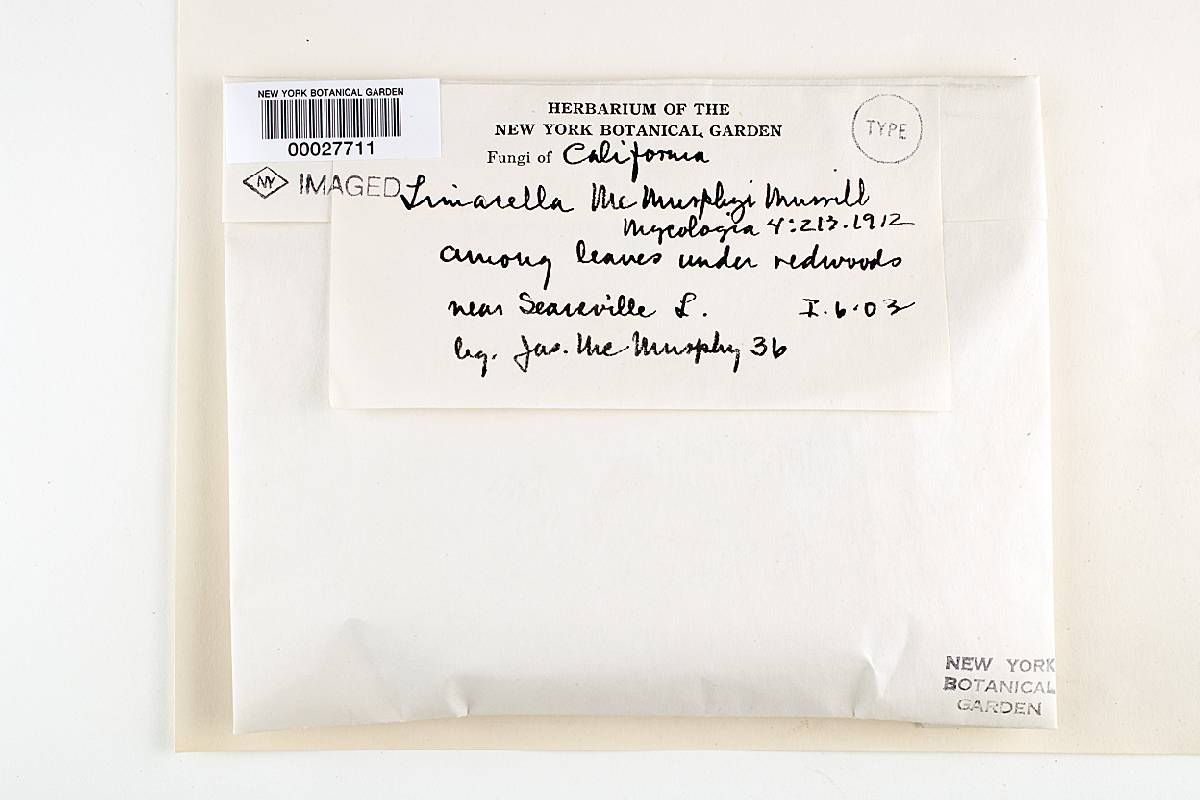 NEW YORK BOTANICAL GARDEN
00027711
NY IMAGED
HERBARIUM OF THE
NEW YORK BOTANICAL GARDEN
Fungi of California
TYPE
Limacella McMurphyi Murrill
Mycologia 4:213.1912
among leaves under redwoods
near Searsville L. I.6.03
leg. Jas. McMurphy 36
NEW YORK
BOTANICAL
GARDEN